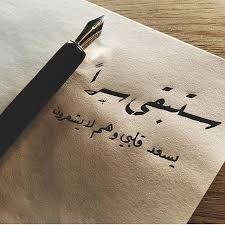 ستبقى سراً
يسعد قلبي وهم لا يشعرون